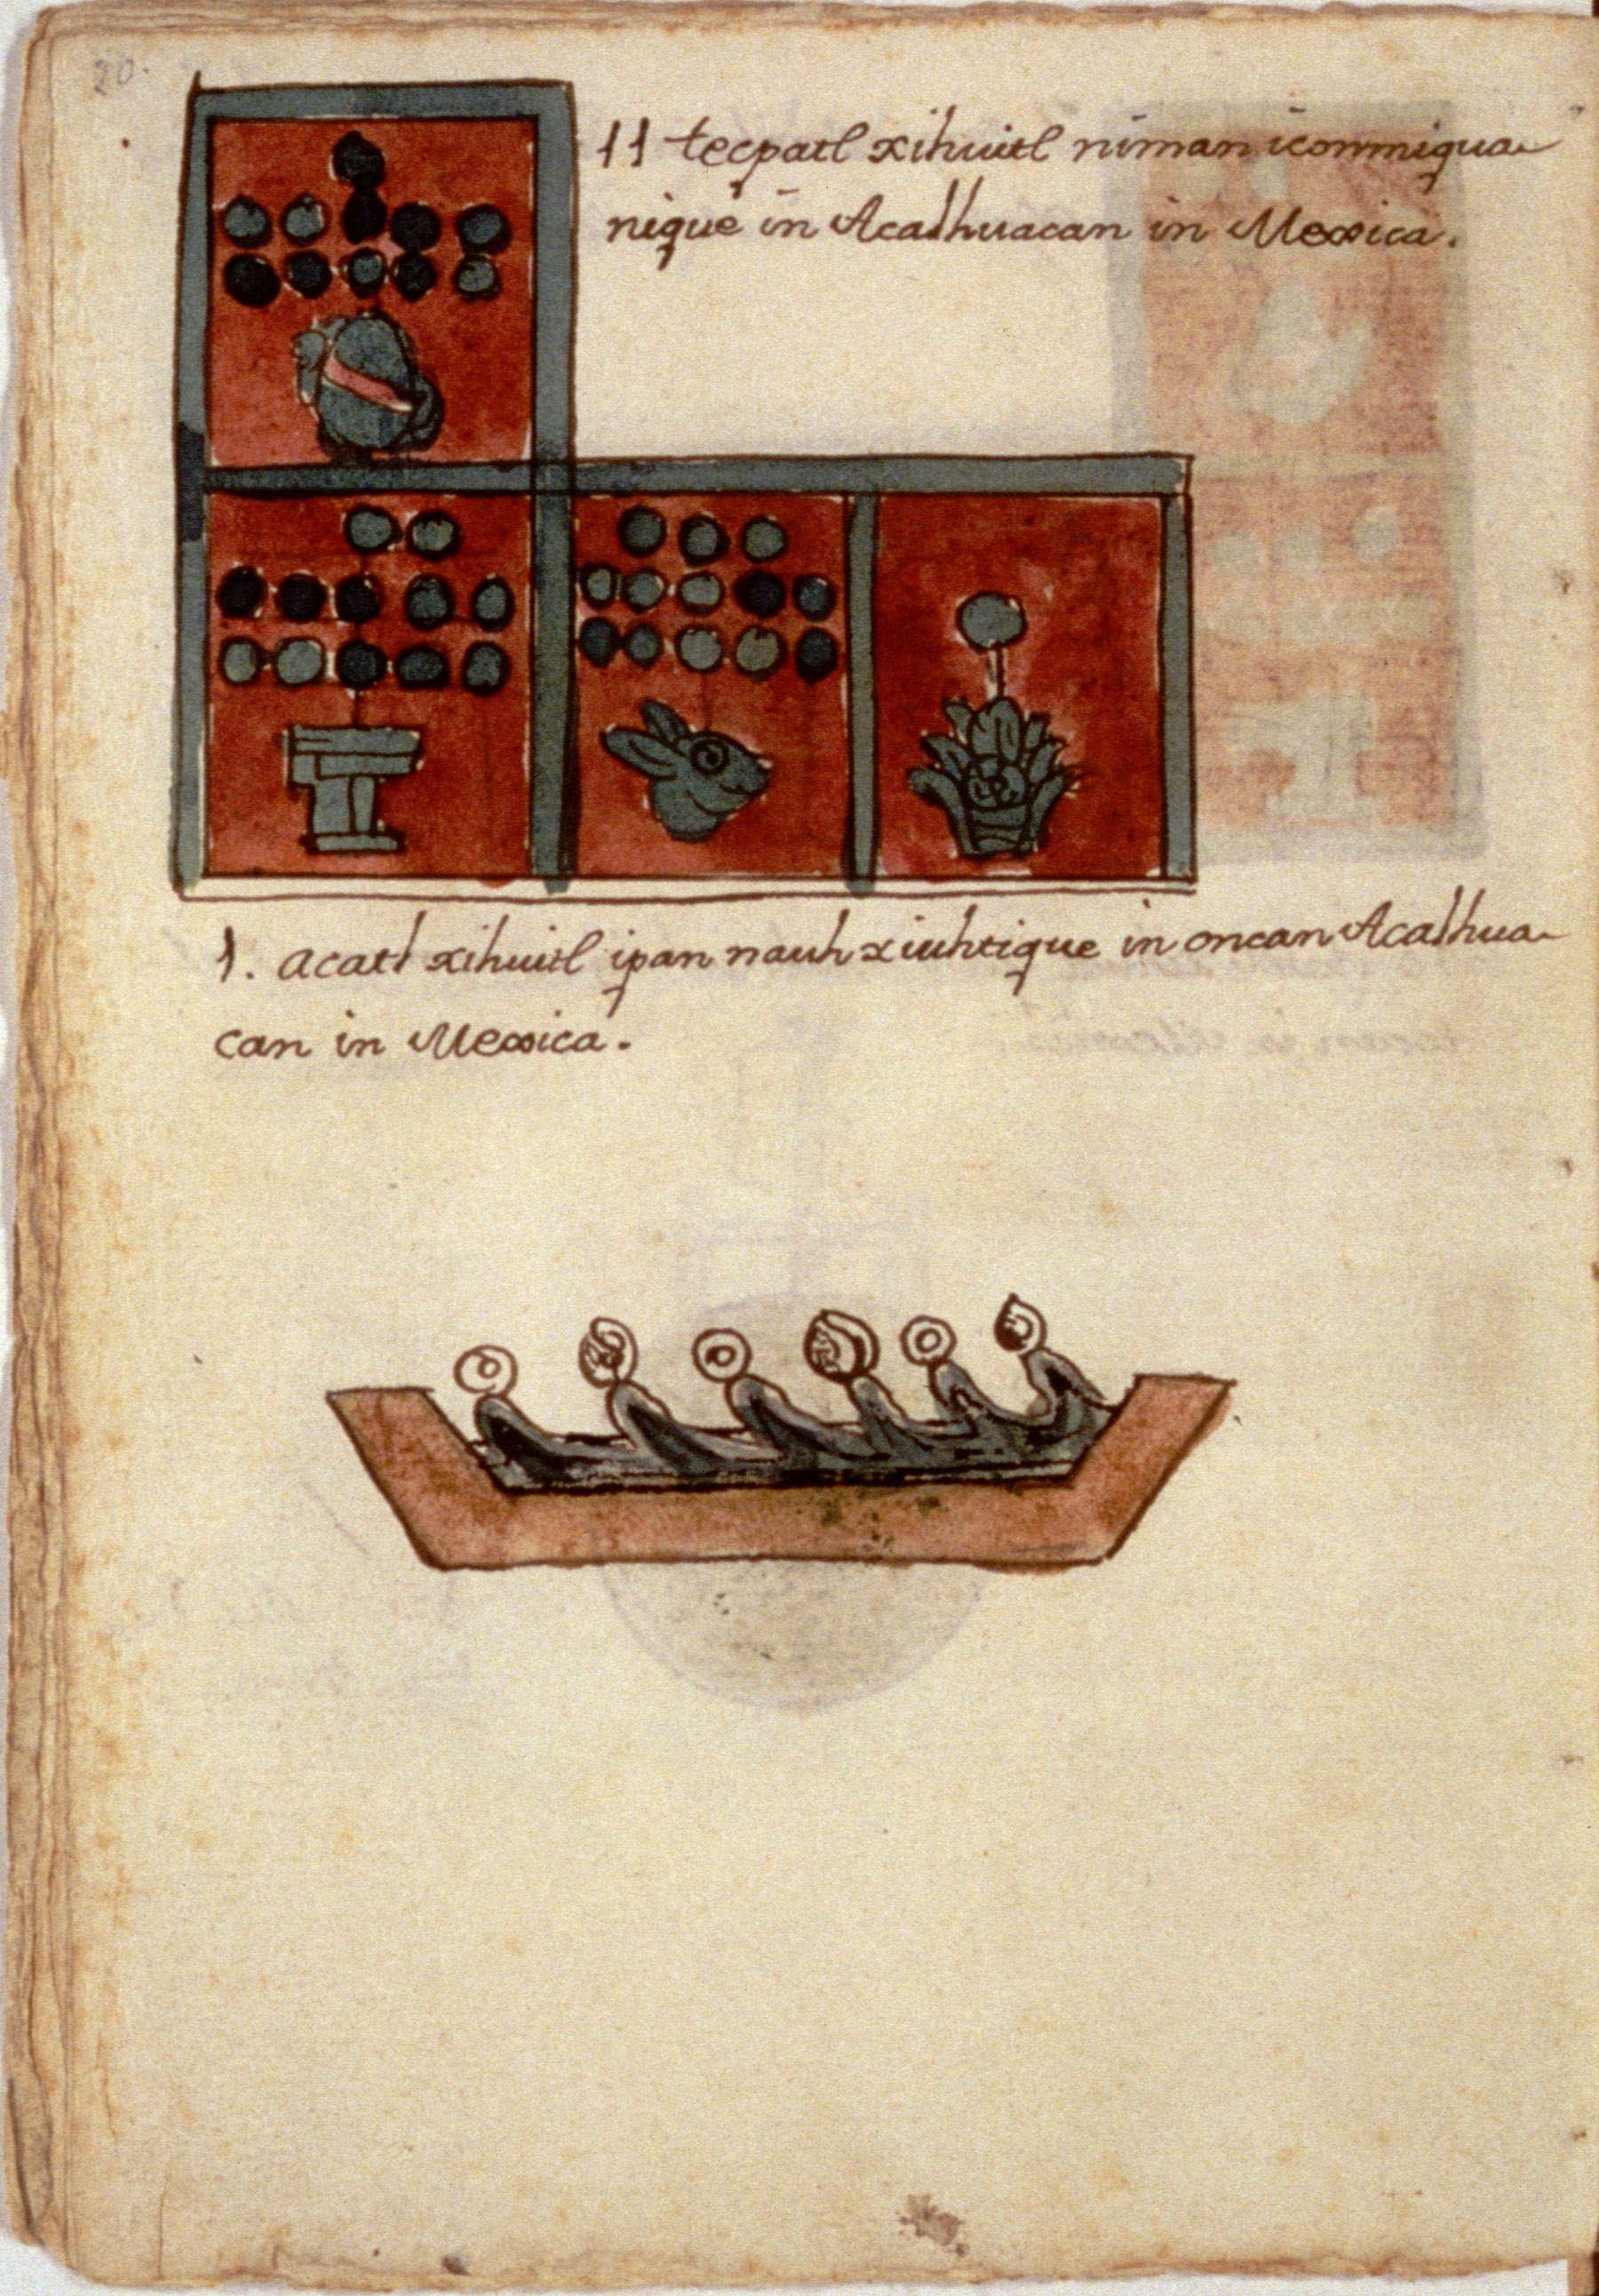 20.
11 tecpatl xihuitl niman iconmiqua
nique in Acalhuacan in Mexica.
1. acatl xihuitl ipan nauhxiuhtique in oncan Acalhua
can in Mexica.